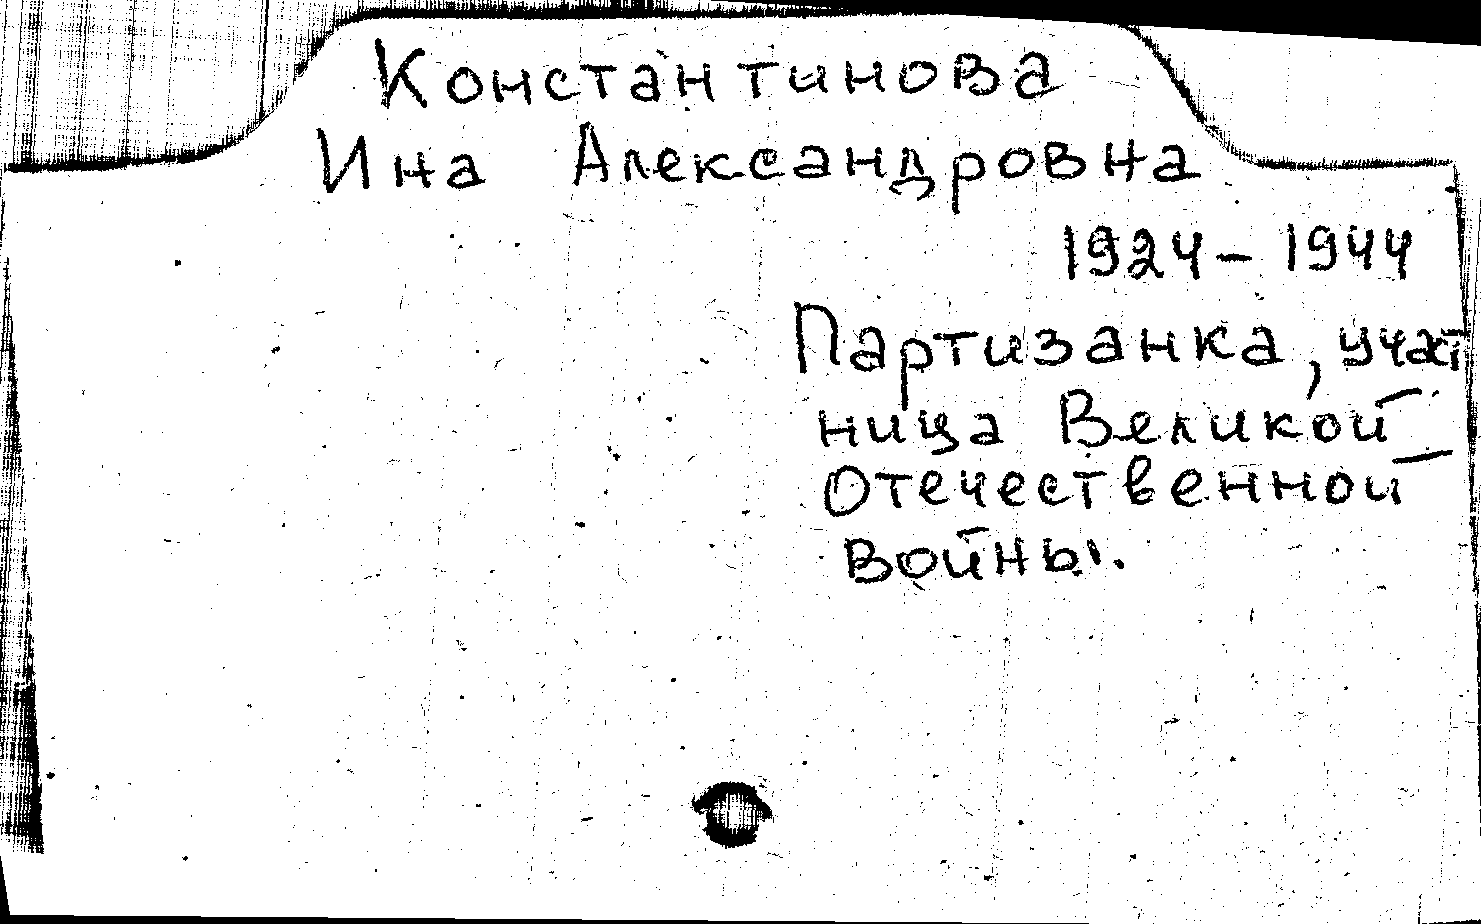 Константинова
Ина Александровна
1924 – 1944
Партизанка, участ
ница Великой
Отечественной
войны.